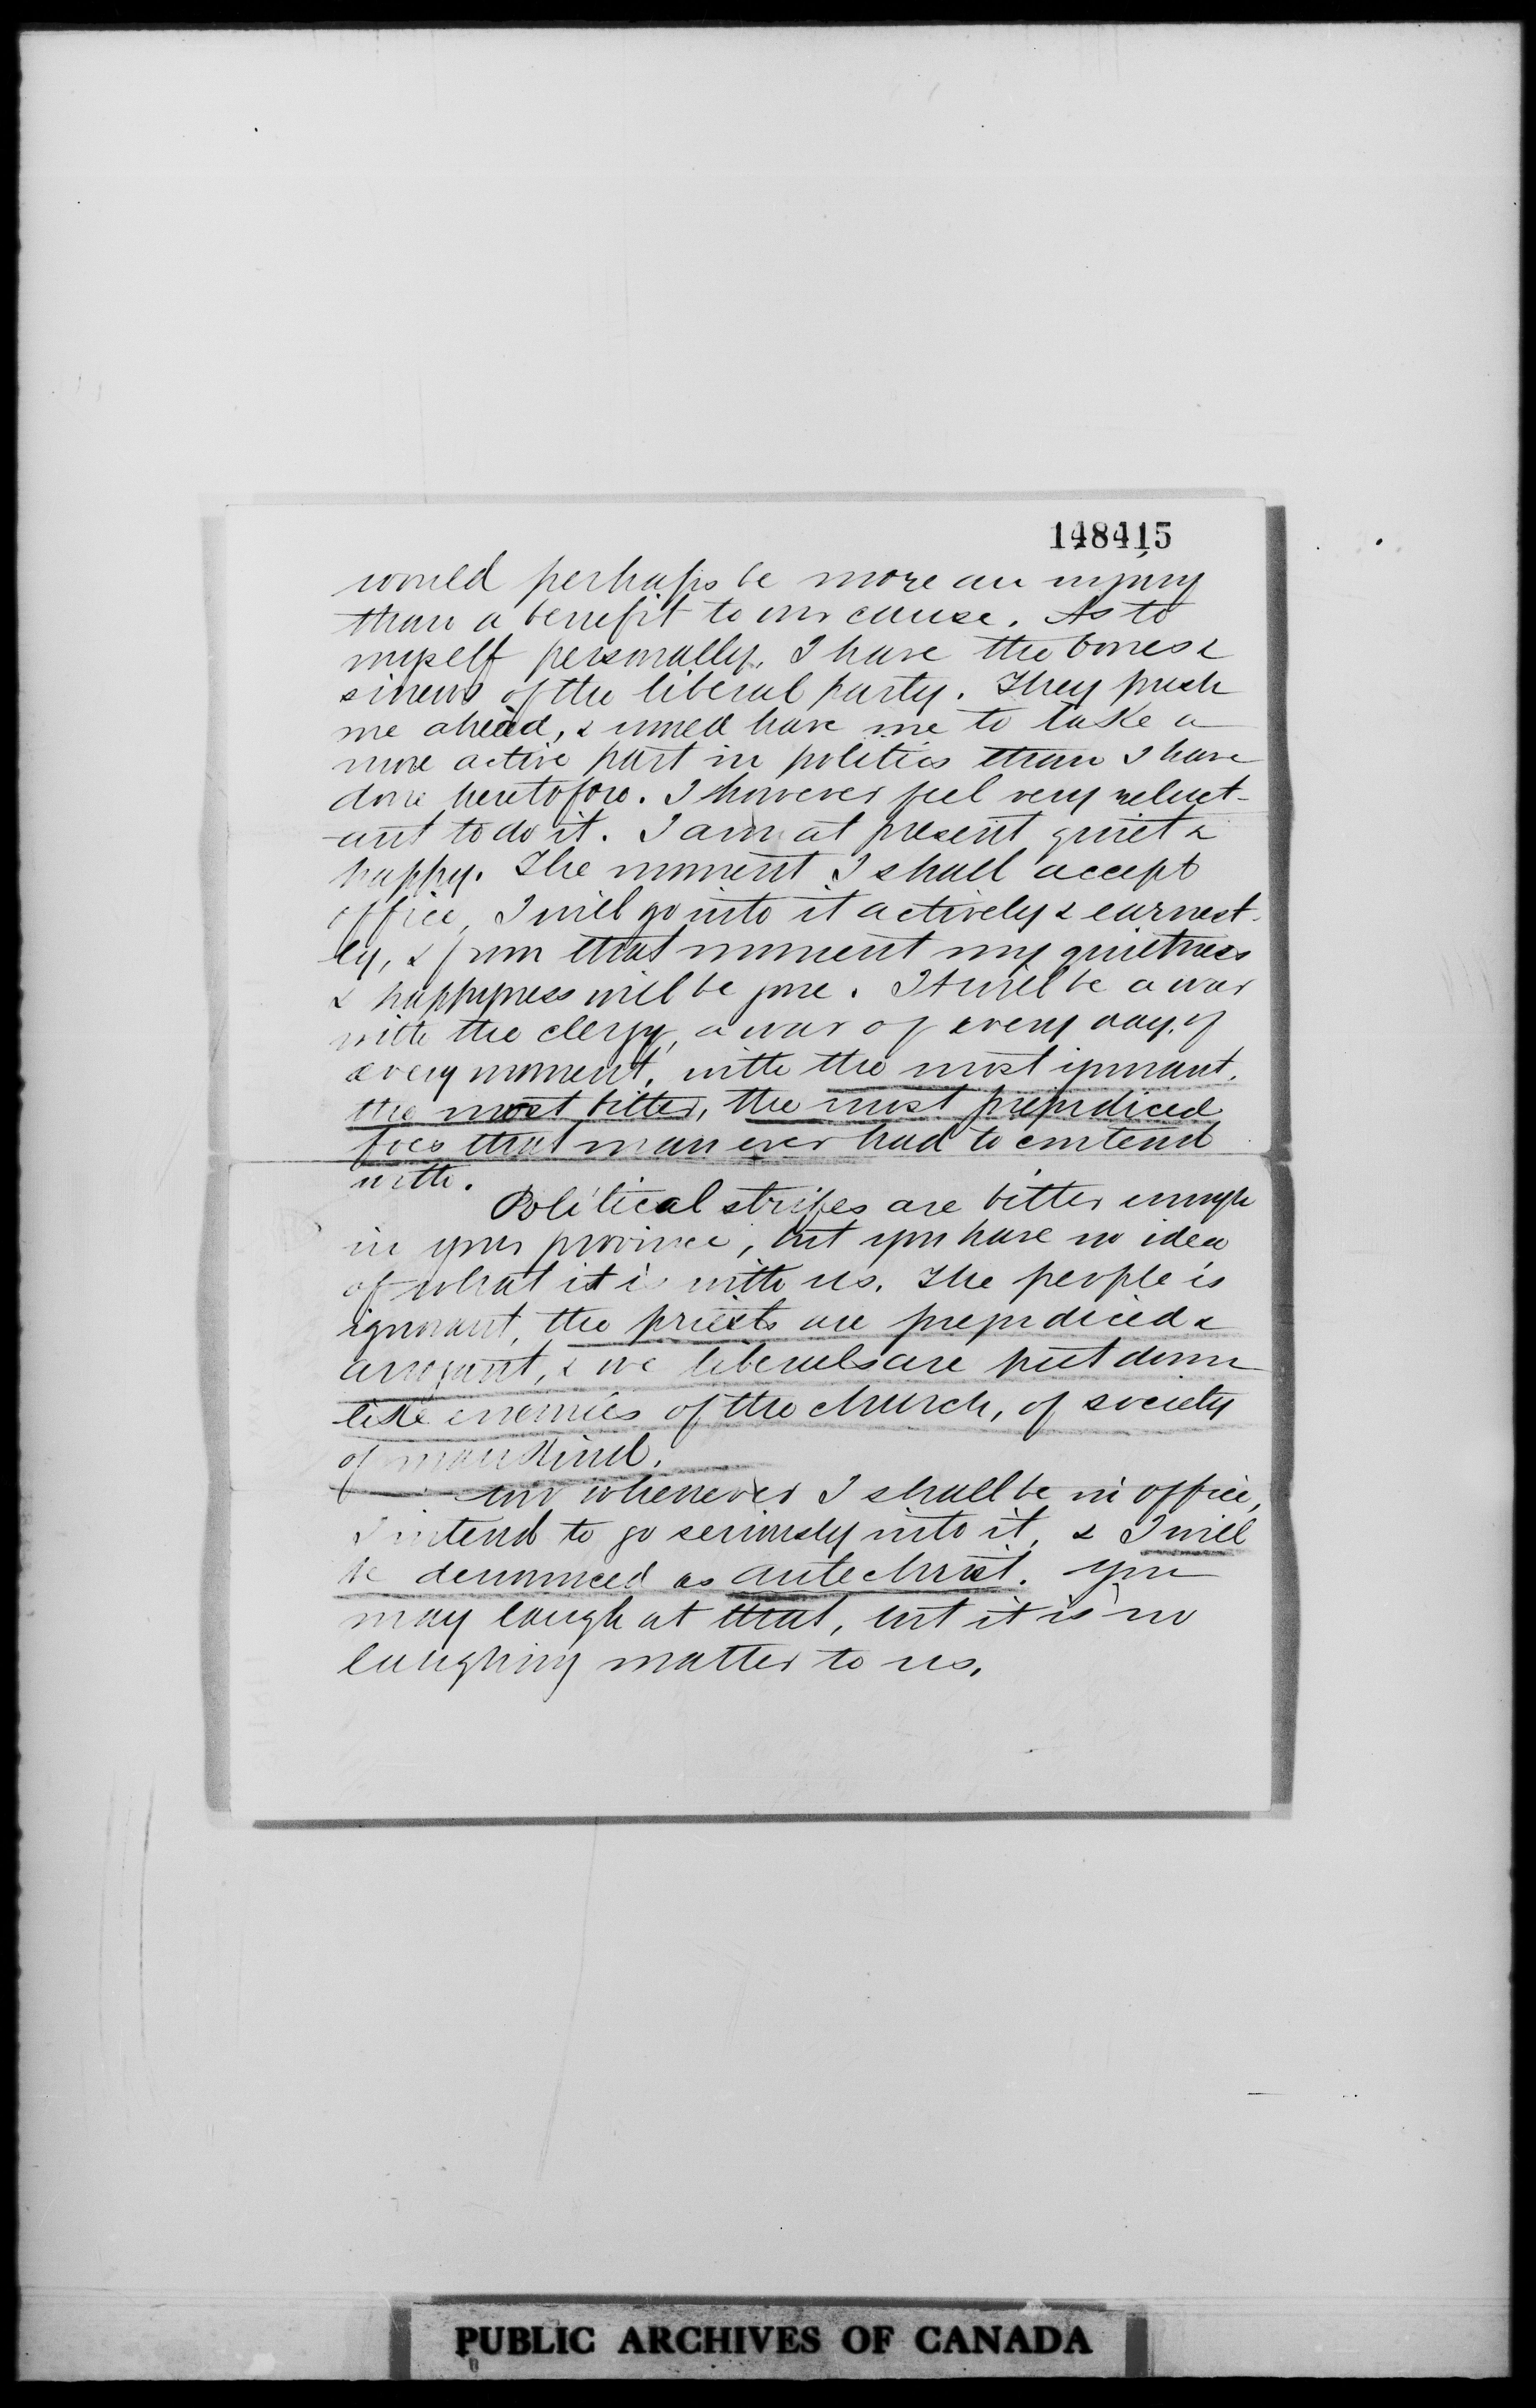 148415
would perhaps be more an injury
than a benefit to our cause. As to
myself personally, I have the bones &
sinews of the liberal party. They push
me ahead, & would have me to take a
more active part in politics than I have
done heretofore. I however feel very reluct-
-ant to do it. I am at present quiet &
happy. The moment I shall accept
office, I will go into it actively & earnest-
ly, & from that moment my quietness
& happyness will be gone. It will be a war
with the clergy, a war of every day, of
every moment, with the most ignorant,
the most bitter, the most prejudiced
foes that man ever had to contend
with.
Political strifes are bitter enough
in your province, but you have no idea
of what it is with us. The people is
ignorant, the priests are prejudiced &
arrogant, & we liberals are put down
like enemies of the church, of society
of mankind.
whenever I shall be in office,
I intend to go seriously into it, & I will
be denounced as antechrist. You
may laugh at that, but it is no
laughing matter to us.
PUBLIC ARCHIVES OF CANADA